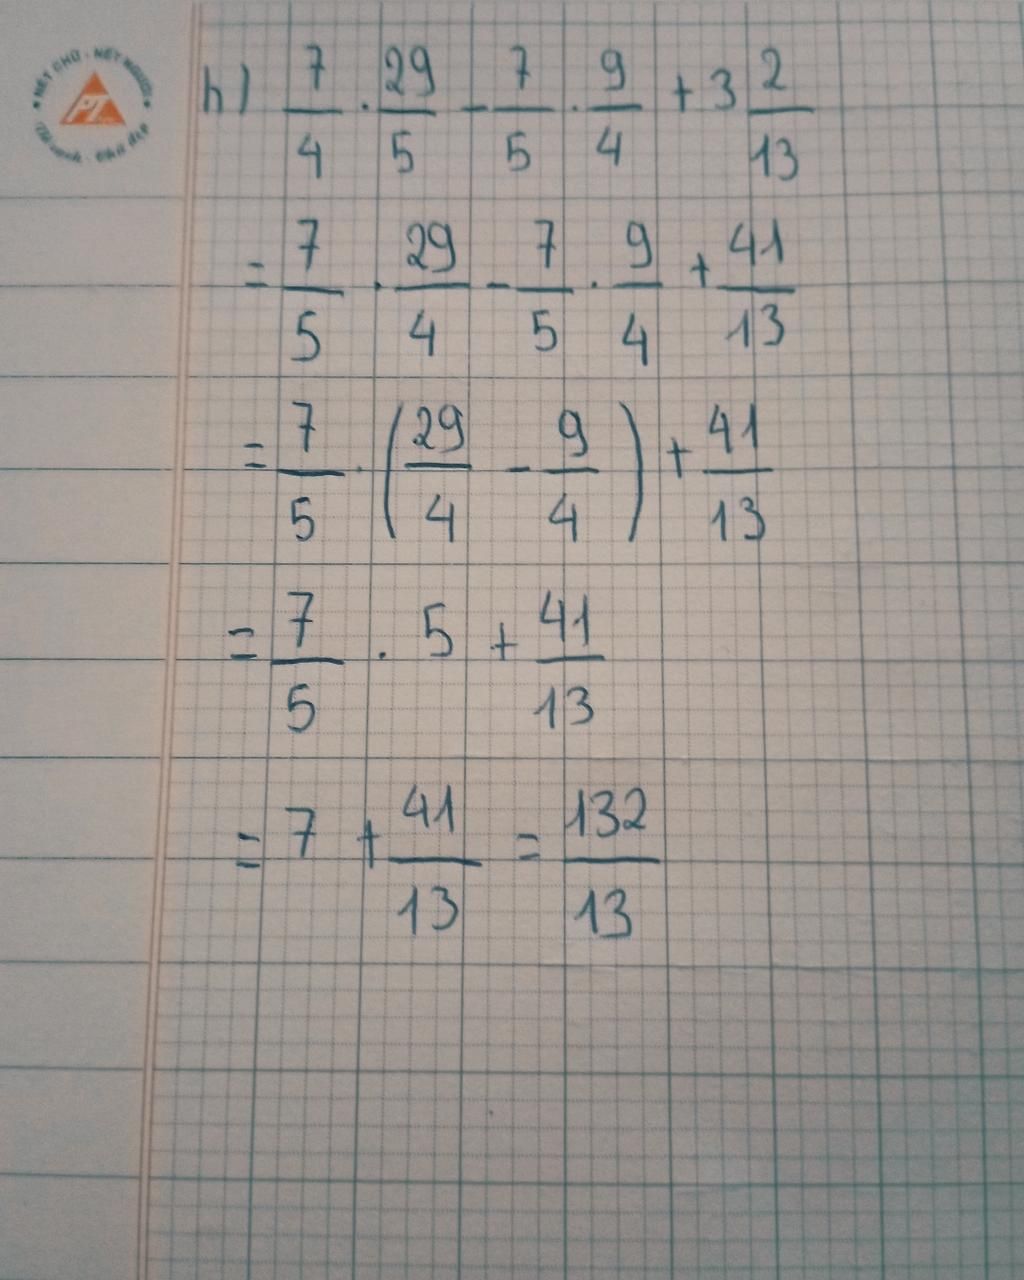 NÉT CHỮ - NẾT NGƯỜI
PT
Vở sạch - Chữ đẹp
h) 7/4 . 29/5 - 7/5 . 9/4 + 3 2/13
= 7/5 . 29/4 - 7/5 . 9/4 + 41/13
= 7/5 . (29/4 - 9/4) + 41/13
= 7/5 . 5 + 41/13
= 7 + 41/13 = 132/13